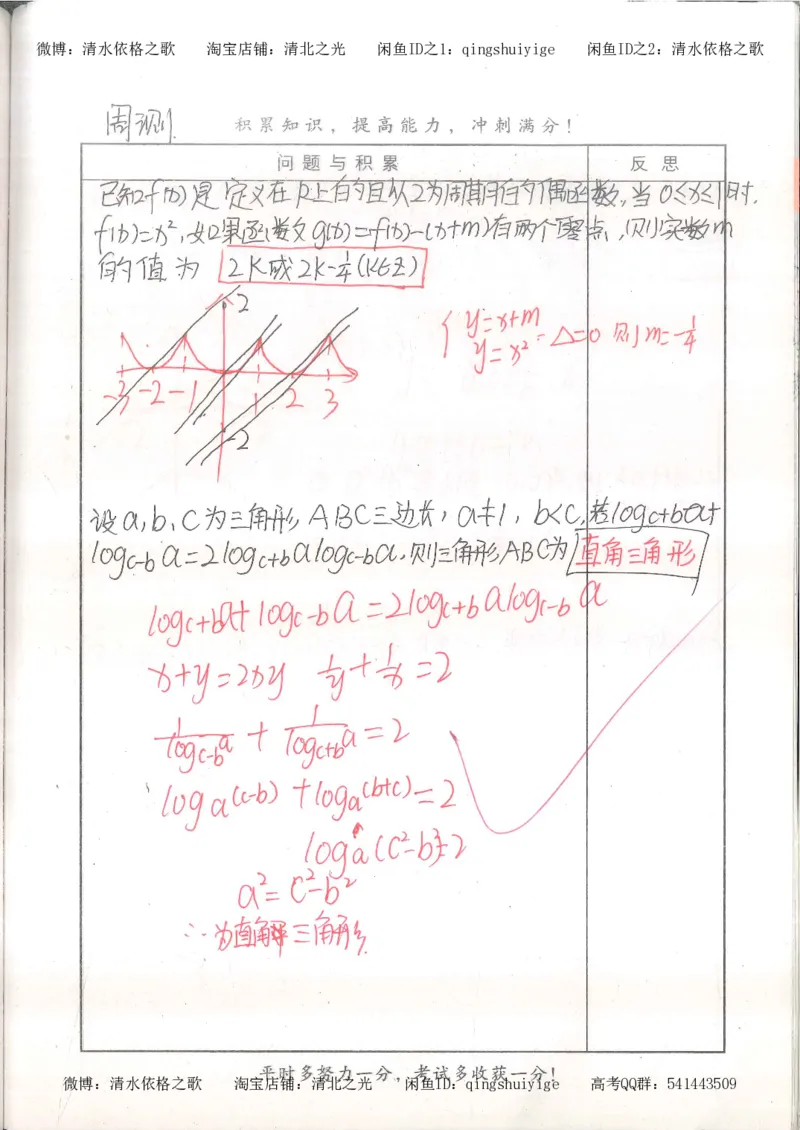 微博：清水依格之歌 淘宝店铺：清北之光 闲鱼ID之1：qingshuiyige 闲鱼ID之2：清水依格之歌
周测 积累知识，提高能力，冲刺满分！
问题与积累 反思
已知f(x)是定义在R上的且以2为周期的偶函数,当0≤x≤1时,
f(x)=x²,如果函数g(x)=f(x)-(x+m)有两个零点,则实数m
的值为 2K或2K-1/4(K∈Z)
2
-3 -2 -1 1 2 3
-2
{ y=x+m y=x² Δ=0 则m=-1/4
设a,b,c为三角形ABC三边长,a≠1,b<c,若log_{c+b}a+
log_{c-b}a=2log_{c+b}alog_{c-b}a.则三角形ABC为 直角三角形
log_{c+b}a+log_{c-b}a=2log_{c+b}alog_{c-b}a
x+y=2xy 1/y+1/x=2
1/log_{c-b}a + 1/log_{c+b}a=2
log_a(c-b)+log_a(b+c)=2
log_a(c²-b²)=2
a²=c²-b²
∴为直角三角形
平时多努力一分，考试多收获一分！
微博：清水依格之歌 淘宝店铺：清北之光 闲鱼ID：qingshuiyige 高考QQ群：541443509